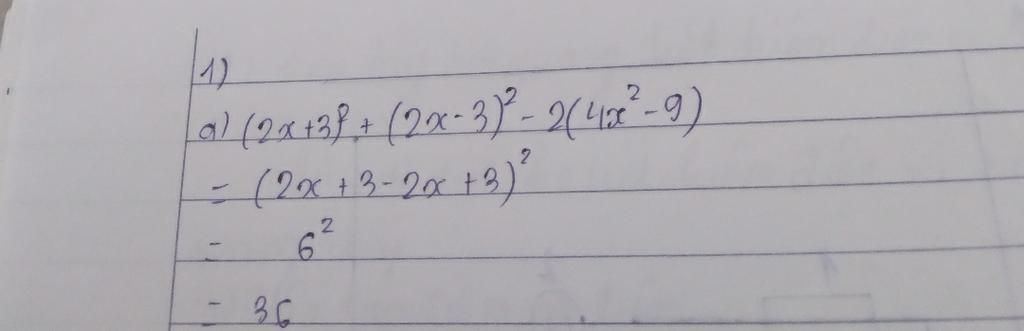 1)
a) (2x+3)² + (2x-3)² - 2(4x² - 9)
= (2x + 3 - 2x + 3)²
= 6²
= 36